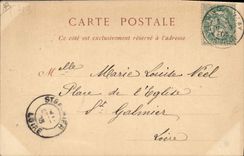 CARTE POSTALE
Ce côté est exclusivement réservé à l'adresse
Melle Marie Louise Néel
Place de l'Eglise
St Galmier
Loire
LOIRE